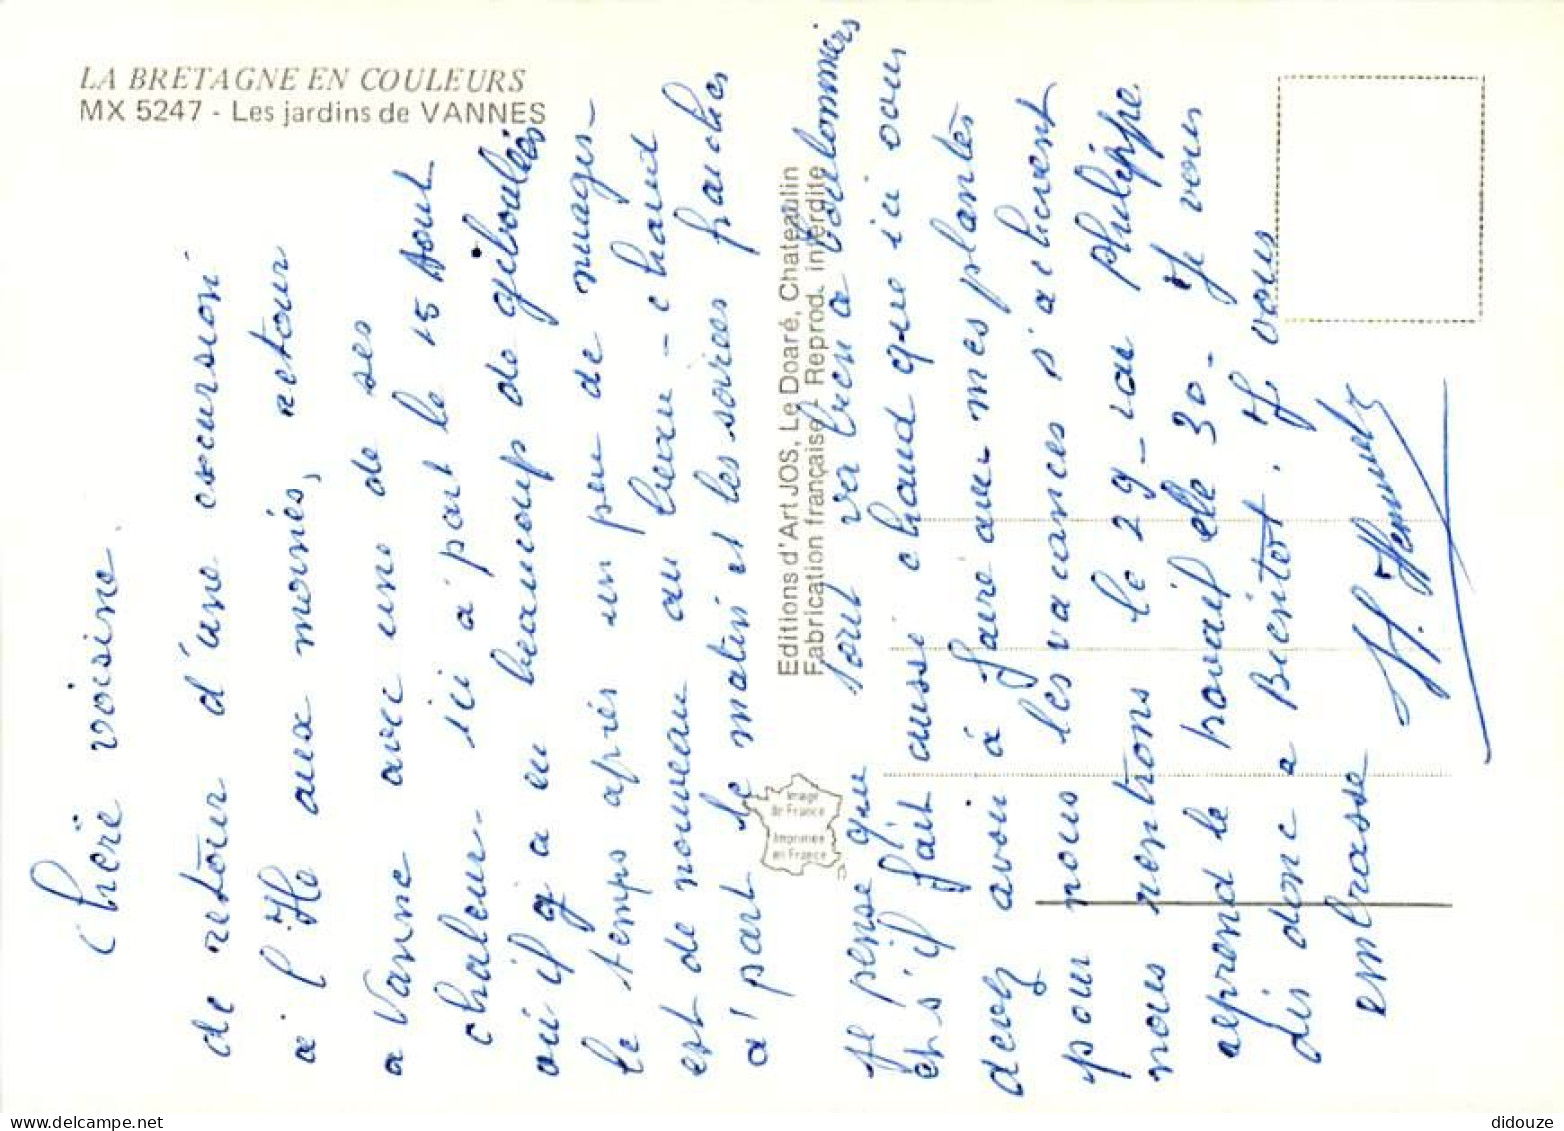 LA BRETAGNE EN COULEURS
MX 5247 - Les jardins de VANNES
Chère voisine.
de retour d'une excursion
a l'Ile aux moines, retour
a Vanne avec une de ses
chaleur. ici a part le 15 Aout
où il y a eu beaucoup de giboulées
le temps après un peu de nuages -
est de nouveau au beau - chaud
a' part le matin et les soirées fraiches
Editions d'Art JOS, Le Doaré, Chateaulin
Fabrication française - Reprod. interdite
Image
de France
Imprimée
en France
Je pense que tout va bien a Coulommiers
et s'il fait aussi chaud que ici vous
devez avoir à faire avec mes plantes
pour nous les vacances s'achevent
nous rentrons le 29 - car Philippe
reprend le travail le 30 - Je vous
dis donc a Bientot. Je vous
embrasse
didouze